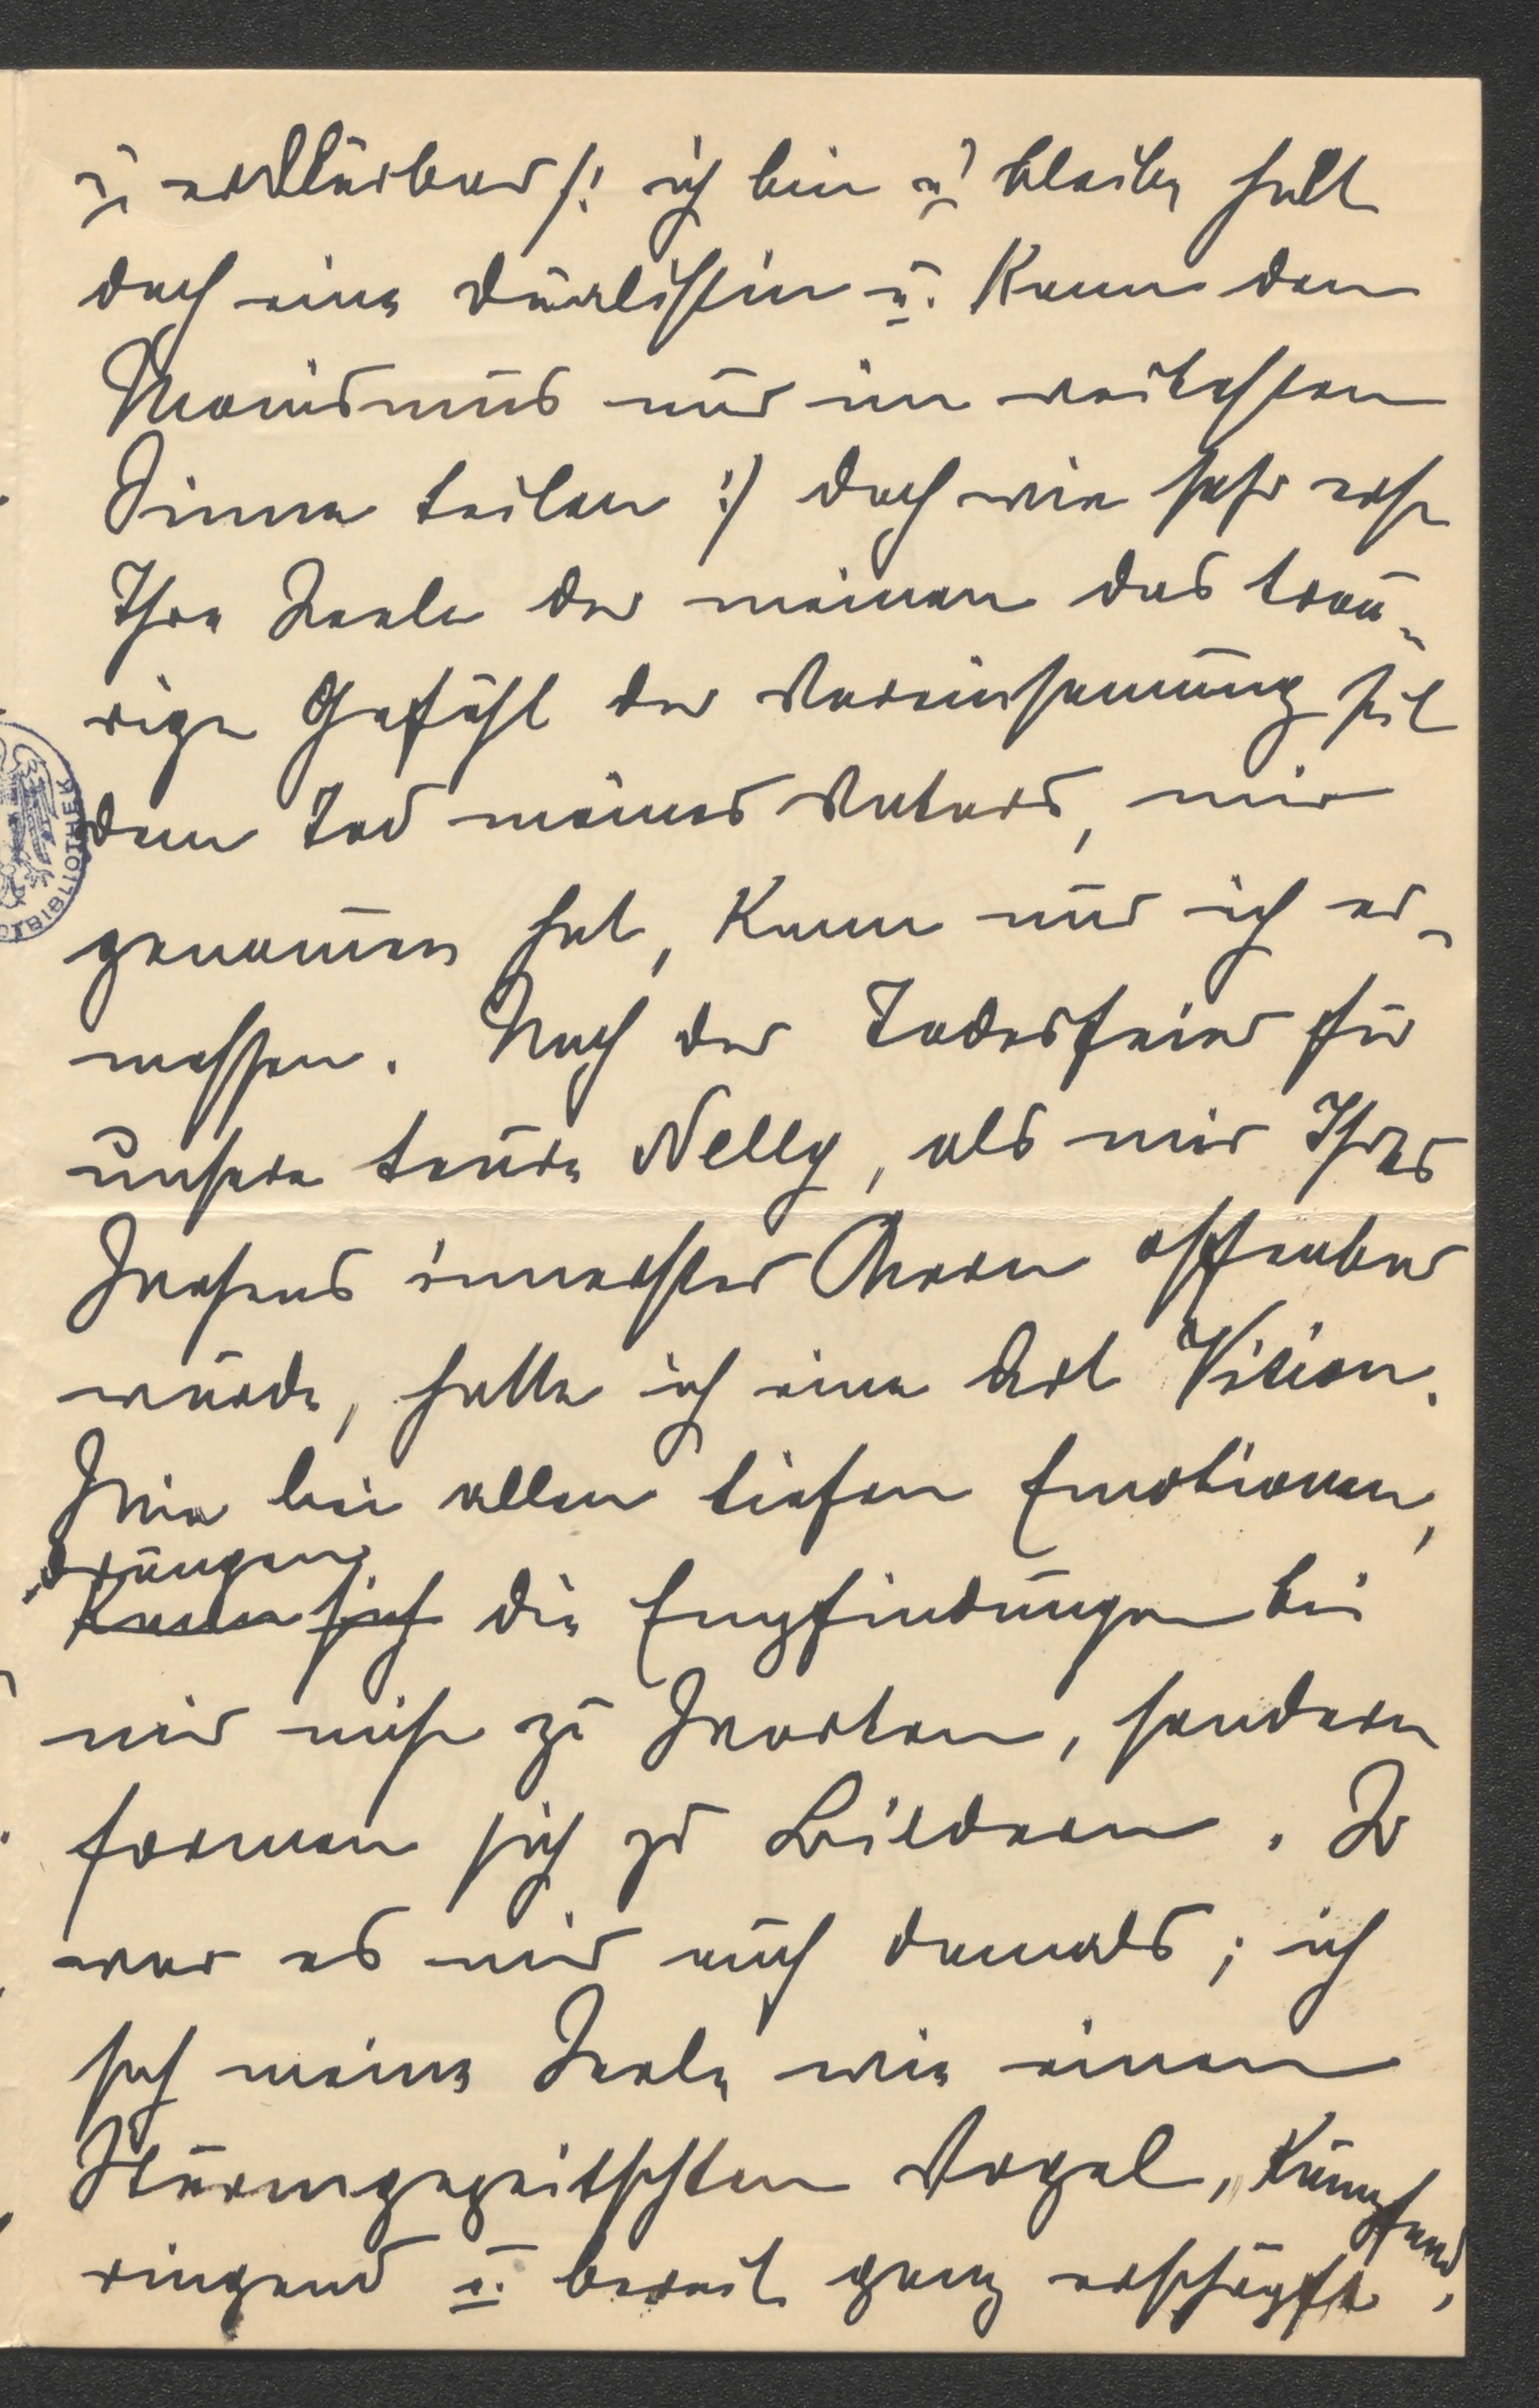 u. erklärbar /: ich bin u. bleibe halt
doch eine Dualistin u. kann den
Monismus nur im weitesten
Sinne teilen :/ doch wie sehr
Ihre Seele der meinen das trau-
rige Gefühl der Vereinsamung seit
dem Tod meines Vaters, mir
genom̄en hat, kann nur ich er-
messen. Nach der Todesfeier für
unsere teure Nelly, als mir Ihres
Wesens innerster Kern offenbar
wurde, hatte ich eine Art Vision.
Wie bei allen tiefen Emotionen,
drängen
kann sich die Empfindungen bei
mir nicht zu Worten, sondern
formen sich zu Bildern. So
war es mir auch damals; ich
sah meine Seele wie einen
Sturmgepeitschten Vogel, kämpfend,
ringend u. bereit ganz erschöpft,
BIBLIOTHEK